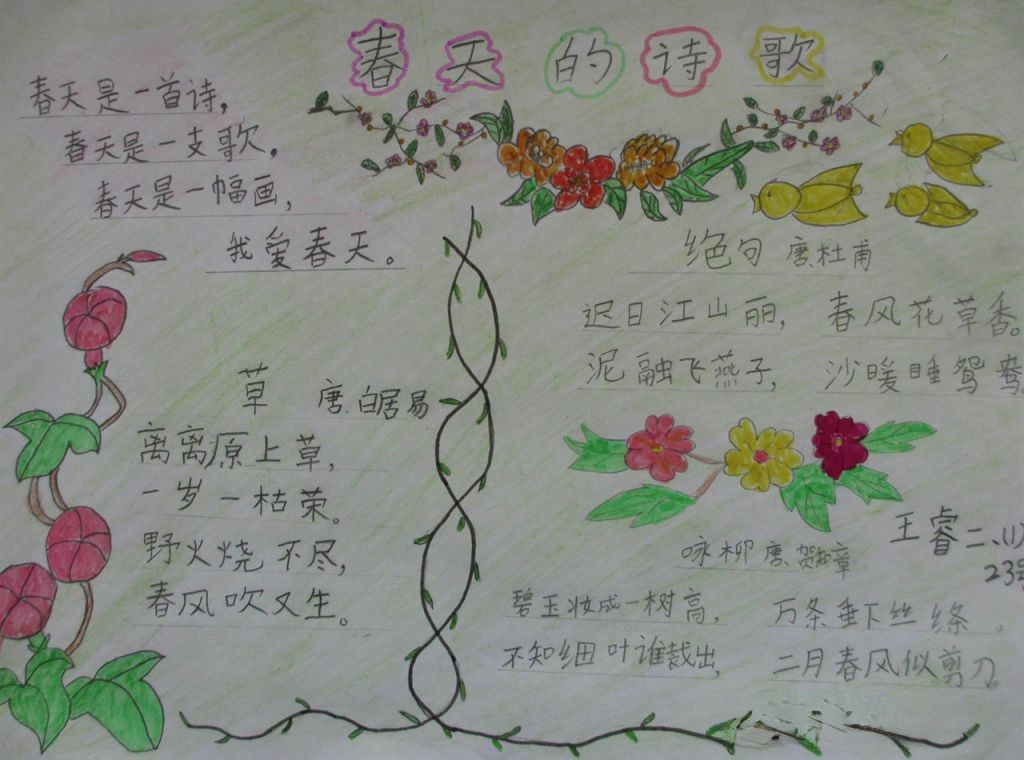 春天的诗歌
春天是一首诗，
春天是一支歌，
春天是一幅画，
我爱春天。
草 唐、白居易
离离原上草，
一岁一枯荣。
野火烧不尽，
春风吹又生。
绝句 唐、杜甫
迟日江山丽， 春风花草香。
泥融飞燕子， 沙暖睡鸳鸯
咏柳 唐、贺知章
碧玉妆成一树高， 万条垂下丝绦。
不知细叶谁裁出， 二月春风似剪刀。
王睿 二、(1)
23号